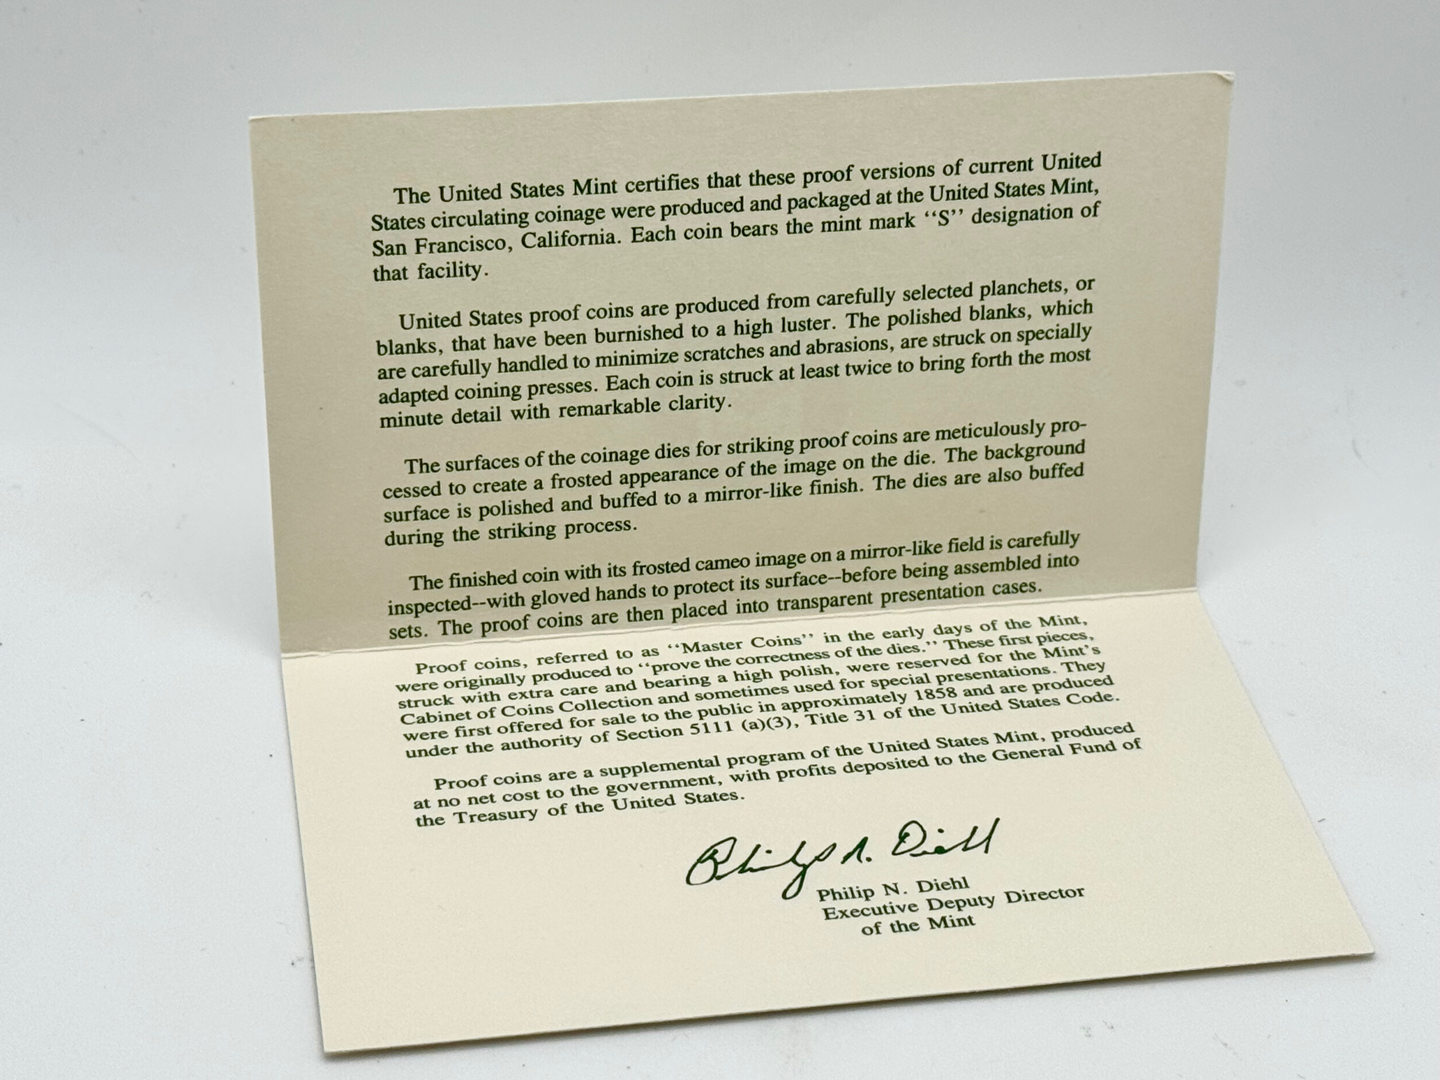 The United States Mint certifies that these proof versions of current United
States circulating coinage were produced and packaged at the United States Mint,
San Francisco, California. Each coin bears the mint mark ‘‘S’’ designation of
that facility.
United States proof coins are produced from carefully selected planchets, or
blanks, that have been burnished to a high luster. The polished blanks, which
are carefully handled to minimize scratches and abrasions, are struck on specially
adapted coining presses. Each coin is struck at least twice to bring forth the most
minute detail with remarkable clarity.
The surfaces of the coinage dies for striking proof coins are meticulously pro-
cessed to create a frosted appearance of the image on the die. The background
surface is polished and buffed to a mirror-like finish. The dies are also buffed
during the striking process.
The finished coin with its frosted cameo image on a mirror-like field is carefully
inspected--with gloved hands to protect its surface--before being assembled into
sets. The proof coins are then placed into transparent presentation cases.
Proof coins, referred to as ‘‘Master Coins’’ in the early days of the Mint,
were originally produced to ‘‘prove the correctness of the dies.’’ These first pieces,
struck with extra care and bearing a high polish, were reserved for the Mint's
Cabinet of Coins Collection and sometimes used for special presentations. They
were first offered for sale to the public in approximately 1858 and are produced
under the authority of Section 5111 (a)(3), Title 31 of the United States Code.
Proof coins are a supplemental program of the United States Mint, produced
at no net cost to the government, with profits deposited to the General Fund of
the Treasury of the United States.
Philip N. Diehl
Philip N. Diehl
Executive Deputy Director
of the Mint